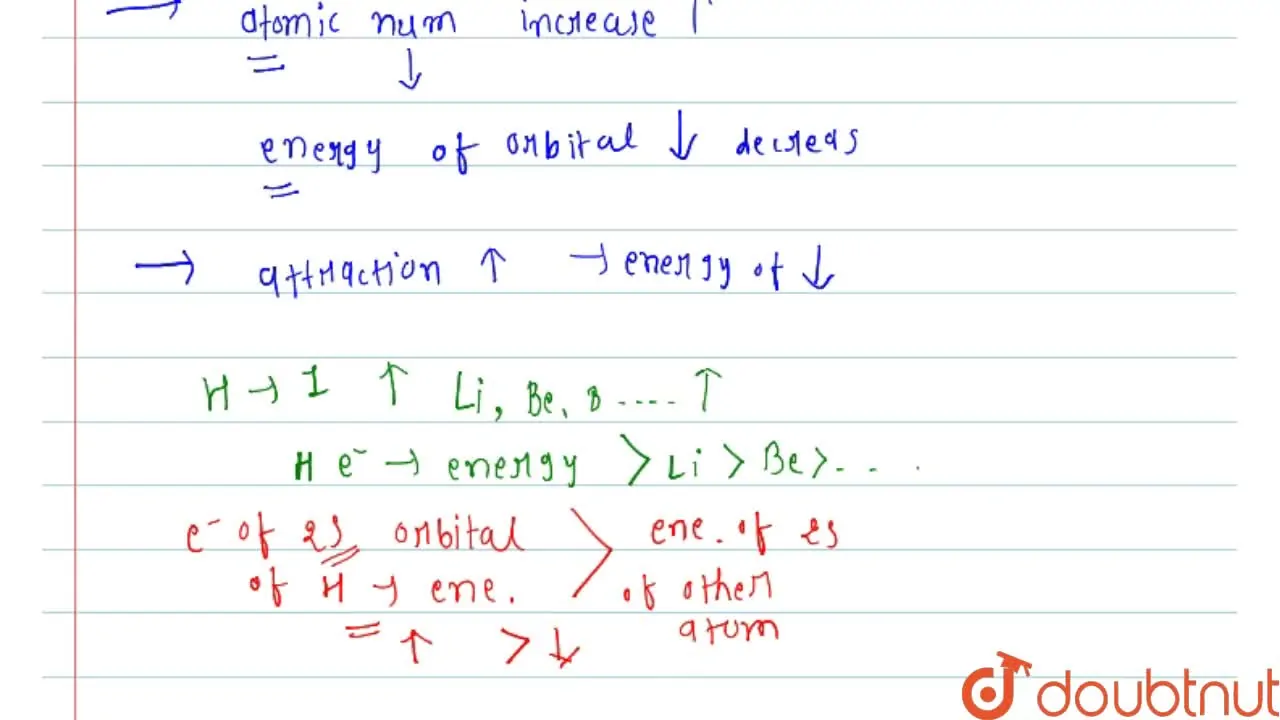 → atomic num increase ↑
↓
energy of orbital ↓ decreas
→ attraction ↑ → energy of ↓
H → 1 ↑ Li, Be, B ..... ↑
H e⁻ → energy > Li > Be > - - .
e⁻ of 2s orbital > ene. of 2s
of H → ene. of other
atom
↑ > ↓
doubtnut